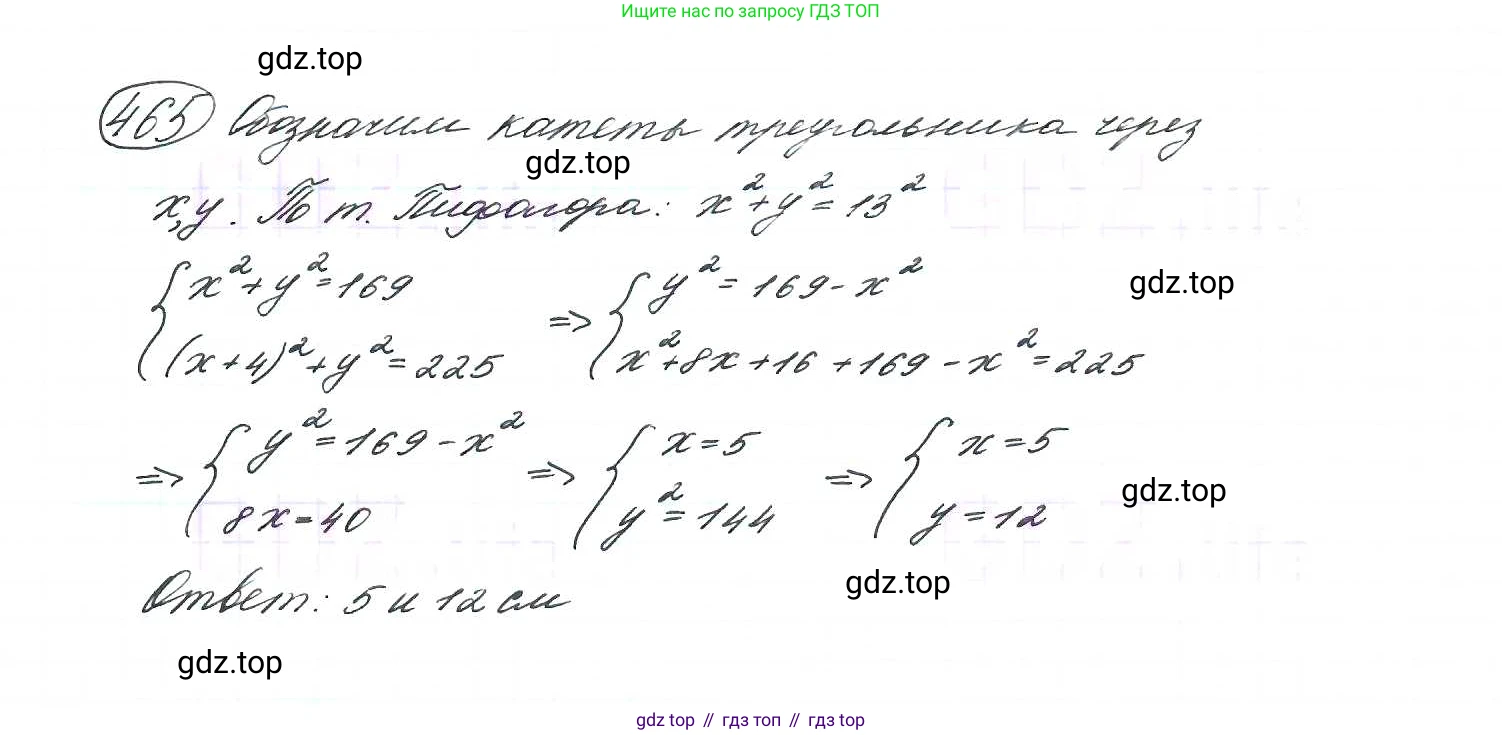 Ищите нас по запросу ГДЗ ТОП
gdz.top
465 Обозначим катеты треугольника через
gdz.top
x, y. По т. Пифагора: x² + y² = 13²
{ x² + y² = 169 => { y² = 169 - x²
gdz.top
(x+4)² + y² = 225 x² + 8x + 16 + 169 - x² = 225
=> { y² = 169 - x² => { x = 5 => { x = 5
8x = 40 y² = 144 y = 12
gdz.top
Ответ: 5 и 12 см
gdz.top
gdz.top
gdz top // гдз топ // гдз top